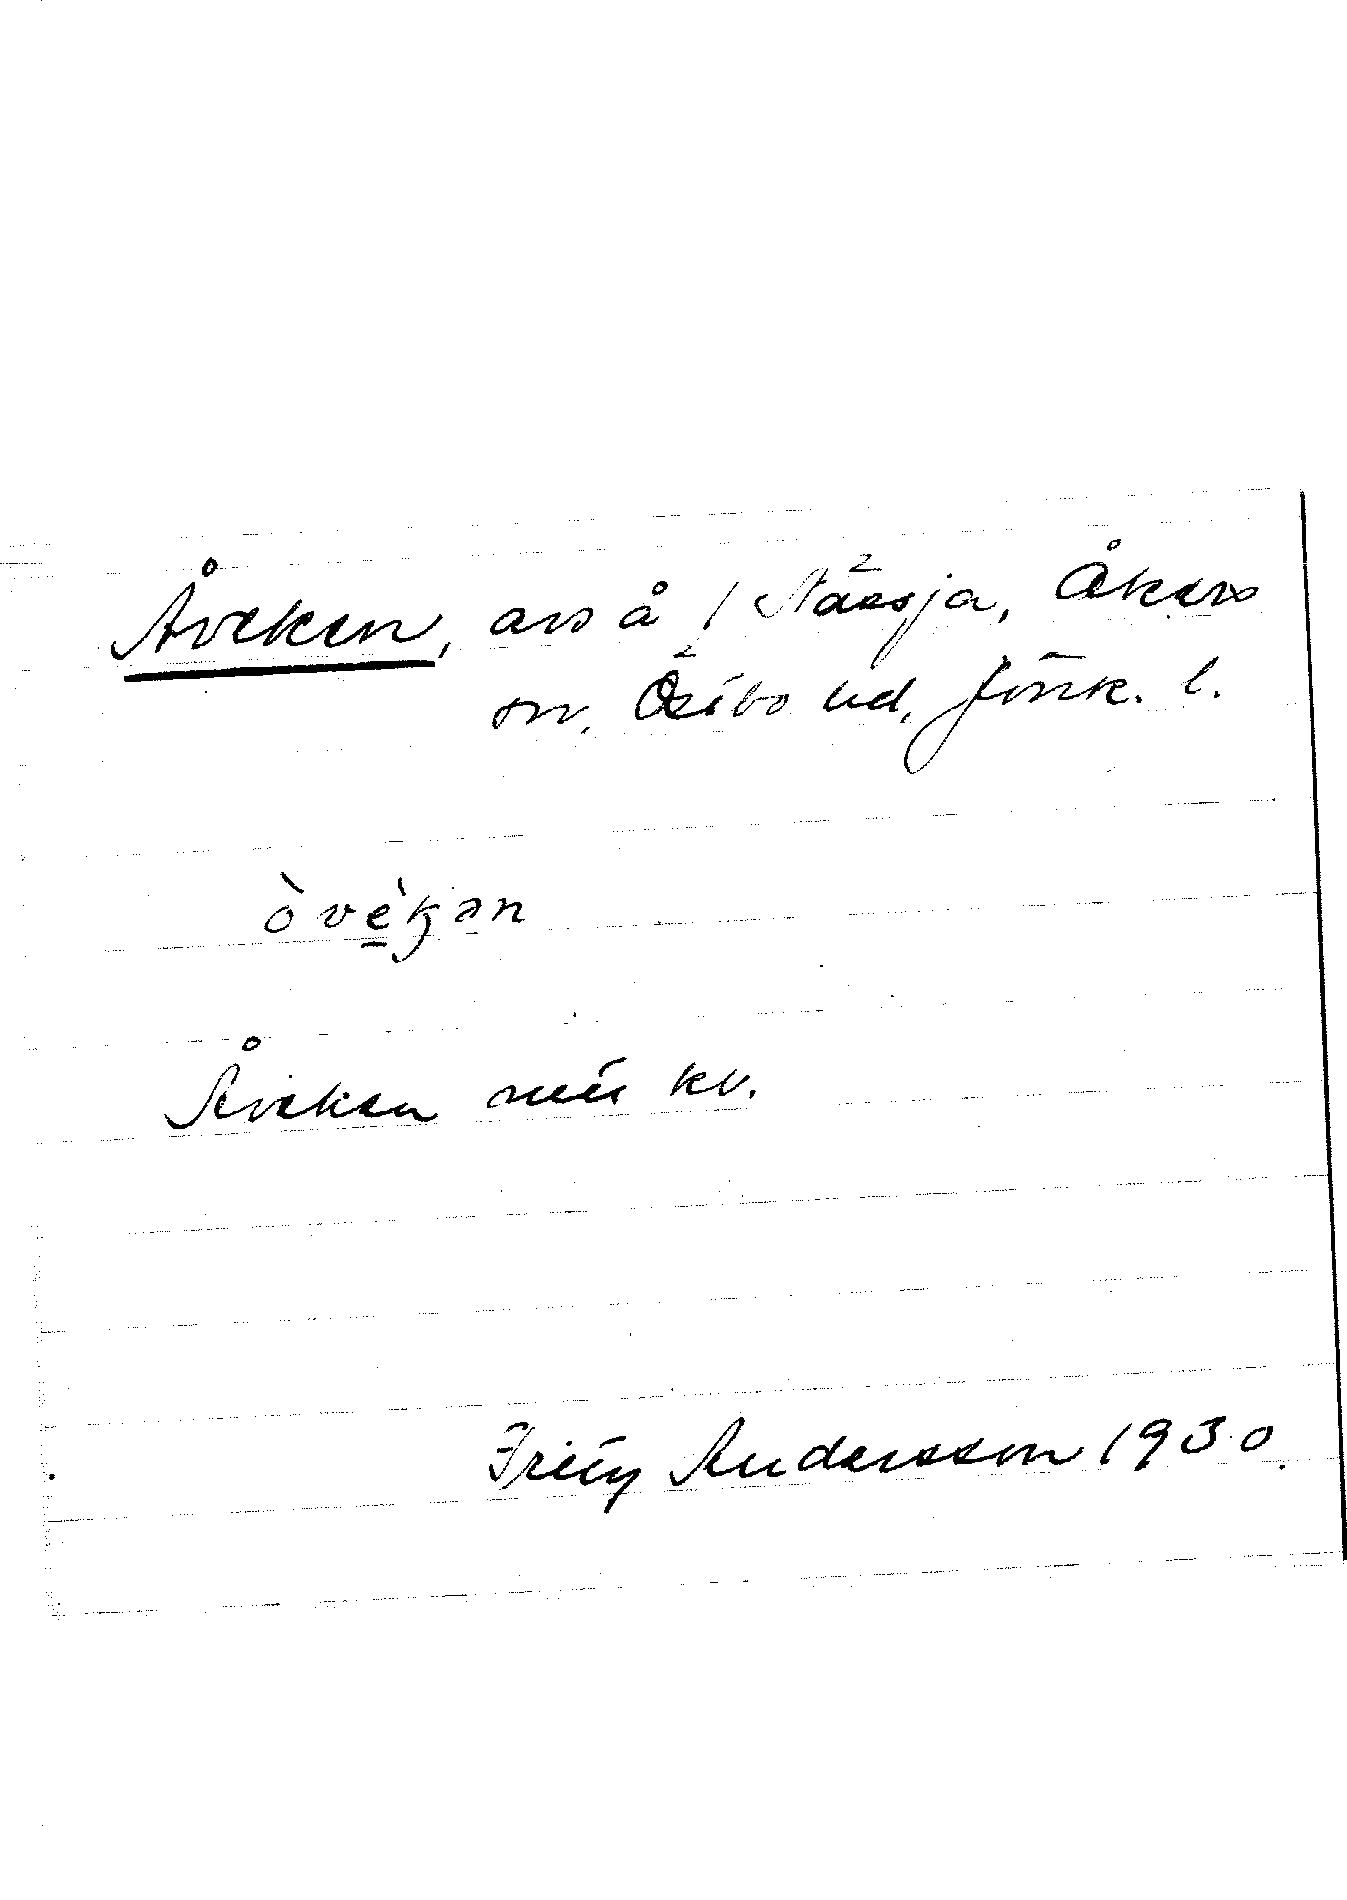 Åveken, avs å 1 Nässja, Åkers
sn, Östbo hd, Jönk. l.
òvèkən
Åveken mtl kv.
Fritz Andersson 1930.